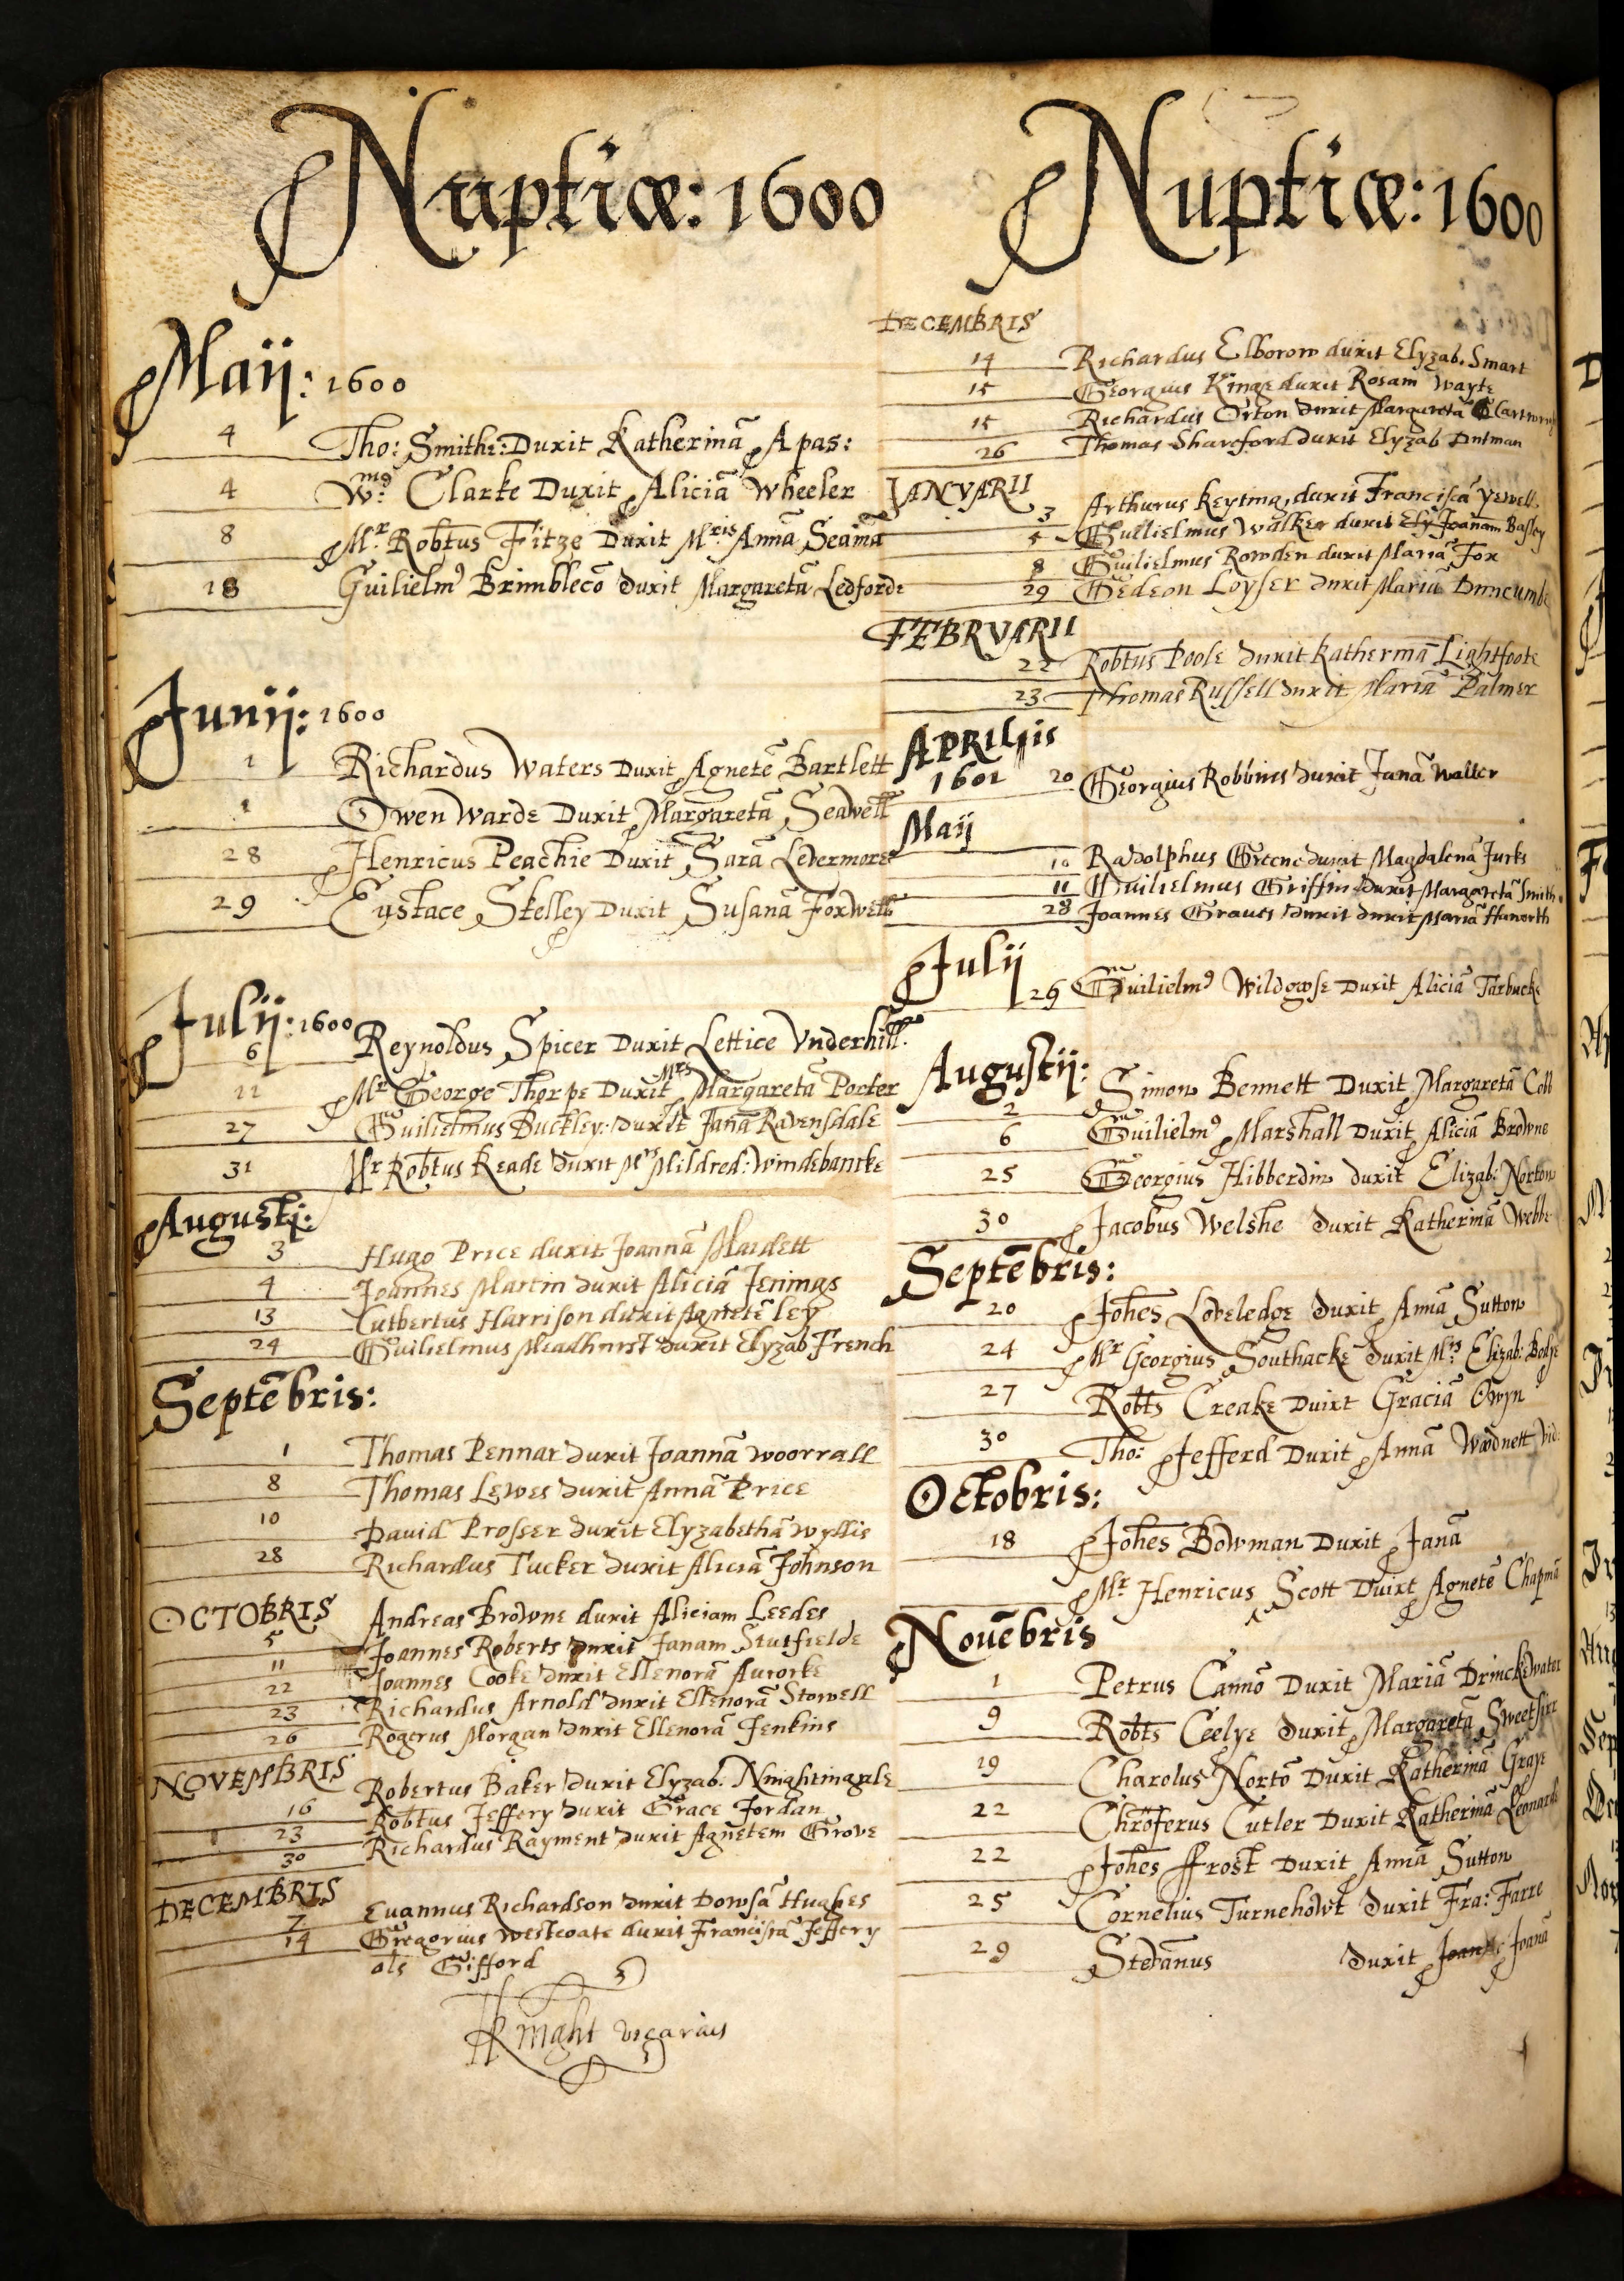 Nuptiæ: 1600
Maij: 1600
4 Tho: Smithe: Duxit Katherinā Apas:
4 Wmꝰ: Clarke Duxit Aliciā Wheeler
8 Mr. Robtus Fitze Duxit Mris Annā Seamā
18 Guilielmꝰ Brimblecō duxit Margaretā Ledforde
Junij: 1600
1 Richardus Waters Duxit Agnetē Bartlett
1 Owen Warde Duxit Margaretā Seawell
28 Henricus Peachie Duxit Sarā Ledermore
29 Eustace Skelley Duxit Susanā Foxwell
Julij: 1600
6 Reynoldus Spicer Duxit Lettice Vnderhill.
11 Mr George Thorpe Duxit Mrs Margaretā Porter
27 Guilielmus Buckley: duxit Janā Ravensdale
31 Mr Robtus Reade duxit Mrs Mildred: Windebancke
Augusti:
3 Hugo Price duxit Joannā Mardett
4 Joannes Martin duxit Aliciā Jenings
13 Cutbertus Harrison duxit Agnetē ley
24 Guilielmus Meadhurst duxit Elyzab French
Septēbris:
1 Thomas Pennar duxit Joannā woorrall
8 Thomas Lewes duxit Annā Price
10 David Prosser duxit Elyzabethā wyllis
28 Richardus Tucker duxit Aliciā Johnson
OCTOBRIS
5 Andreas Browne duxit Aliciam Leedes
11 Joannes Roberts duxit Janam Stutfielde
22 Joannes Cooke duxit Ellenorā Aurorke
23 Richardus Arnold duxit Ellenorā Stowell
26 Rogerus Morgan duxit Ellenorā Jenkins
NOVEMBRIS
16 Robertus Baker duxit Elyzab. Nnightingale
23 Robtus Jeffery duxit Grace Jordan
30 Richardus Rayment duxit Agnetem Grove
DECEMBRIS
7 Euannus Richardson duxit Dowsā Hughes
14 Gregorius Westcoate duxit Franciscā Jeffery
als Gifford
Knight vicarius
Nuptiæ: 1600
DECEMBRIS
14 Richardus Elborow duxit Elyzab. Smart
15 Georgius Kinge duxit Rosam Wayte
15 Richardus Orton duxit Margaretā
26 Thomas Shareford duxit Elyzab Dutman
JANVARII
3 Arthurus Keyting duxit Franciscā Yewell
5 Guilielmus Walker duxit Ely Joanam Basley
8 Guilielmus Rowden duxit Mariā Fox
29 Gedeon Loyser duxit Mariā Duncumbe
FEBRVARII
22 Robtus Poole duxit Katherinā Lightfoote
23 Thomas Russell duxit Mariā Palmer
APRILIis
1601 20 Georgius Robbins duxit Janā Waller
Maij
10 Radolphus Greene duxit Magdalenā Jurks
11 Guilielmus Griffin duxit Margaretā Smith
28 Joannes Graues duxit duxit Mariā Haworth
Julij
26 Guilielmꝰ Wildgose Duxit Aliciā Tarbucke
Augustij:
2 Simon Bennett Duxit Margaretā Cobb
6 Guilielmꝰ Marshall Duxit Aliciā Browne
25 Georgius Hibberdin duxit Elizab: Norton
30 Jacobus Welshe duxit Katherinā Webbe
Septēbris:
20 Johēs Loveledge duxit Annā Sutton
24 Mr Georgius Southacke duxit Mrs: Elizab:
27 Robts Creake Duixt Graciā Owyn
30 Tho: Jefferd Duxit Annā Woodnett vid:
Octobris:
18 Johēs Bowman Duxit Janā
Mr Henricus Scott Duixt Agnetē Chapmā
Nouēbris
1 Petrus Cannō Duxit Mariā Drinckewater
9 Robts Ceelye duxit Margaretā
19 Charolus Nortō Duxit Katherinā Graye
22 Chrōferus Cutler Duxit Katherinā Leonarde
22 Johēs ffrost Duxit Annā Sutton
25 Cornelius Turnehowt duxit Fra: Farre
29 Stevanus duxit Joanā